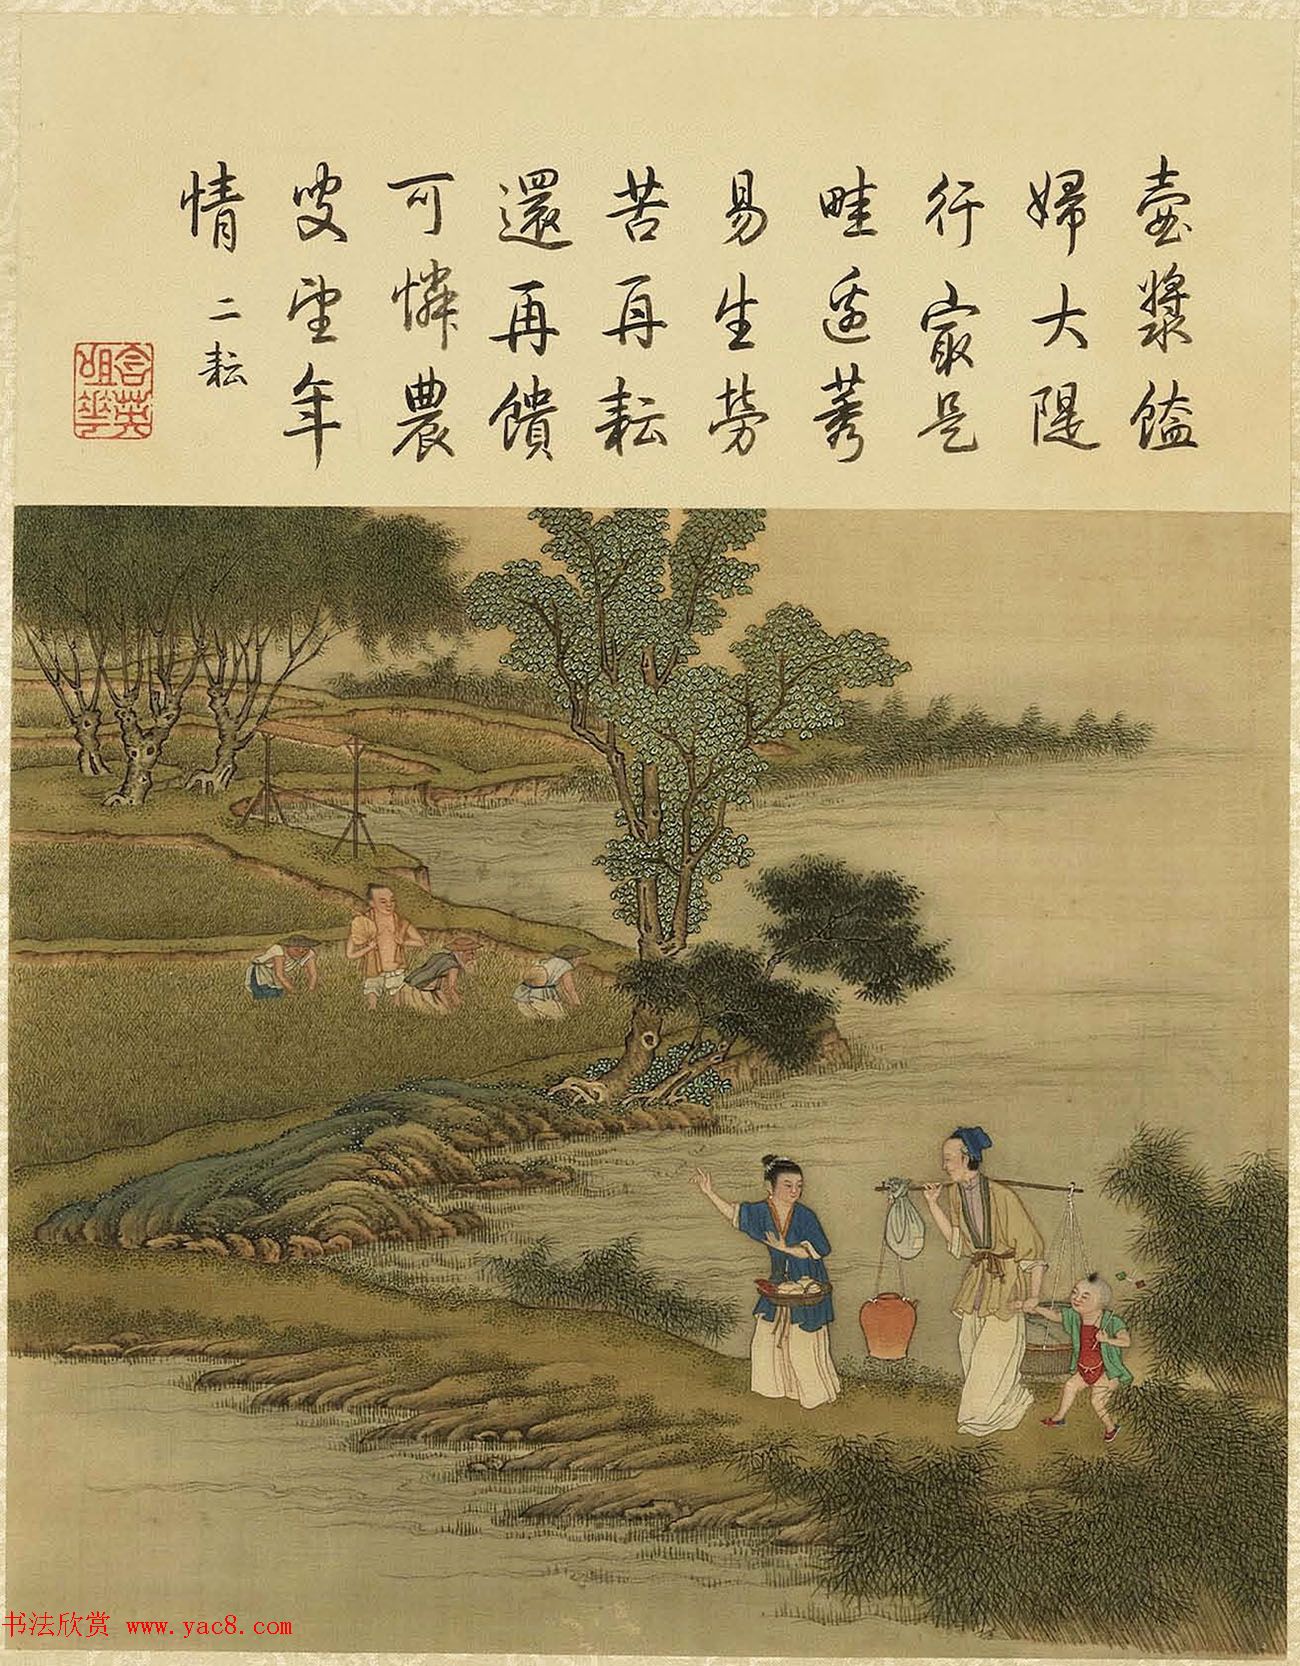 壺漿饁
婦大隄
行最是
畦邊莠
易生勞
苦再耘
還再饋
可憐農
叟望年
情 二耘
含英
咀華
书法欣赏 www.yac8.com